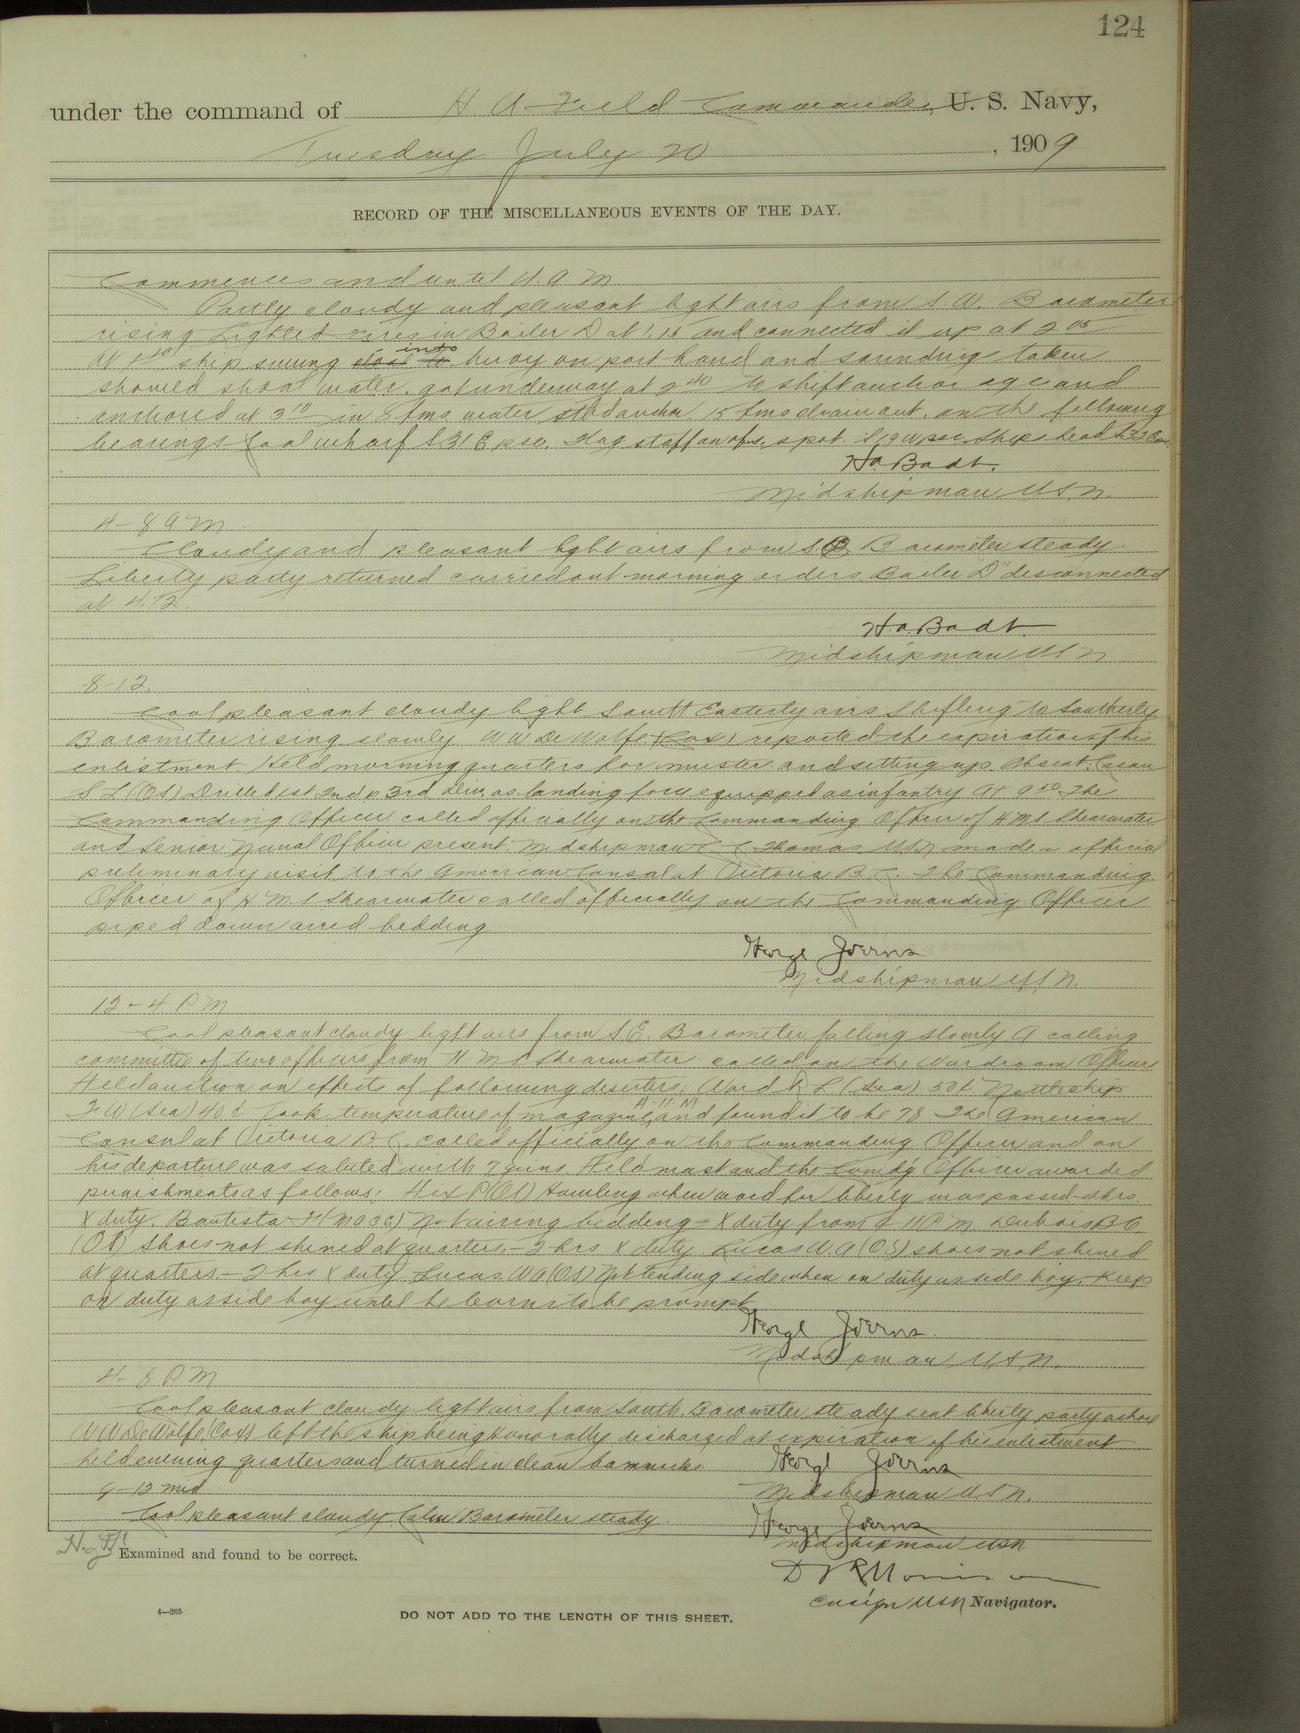 124
under the command of H. A. Field Commander, U. S. Navy,
Tuesday July 20, 1909
RECORD OF THE MISCELLANEOUS EVENTS OF THE DAY.
Commences and until 4. A M
Partly cloudy and pleasant light airs from S. W. Barometer
rising Lighted fires in Boiler D at 1.15 and connected it up at 2 05
At ship swung close to into buoy on port hand and soundings taken
showed shoal water. got underway at 2 40 to shift anchorage and
anchored at 3 10 in 8 fms water stbd anchor 15 fms chain out, on the following
bearings Coal wharf S 31 E psc. Flag staff on ofs. spot. S 19 W psc Ships head
H.A. Badt.
Midshipman U.S.N.
4-8 A M
Cloudy and pleasant light airs from S.E. Barometer steady.
Liberty party returned carried out morning orders Boiler "D" disconnected
at 4.12.
H.A. Badt.
Midshipman U S N
8-12.
Cool pleasant cloudy light South Easterly airs shifting to Southerly
Barometer rising slowly W W De Wolfe (Cox) reported the expiration of his
enlistment Held morning quarters for muster and setting up Absent:
S L (OS) Drilled 1st 2nd & 3rd divs. as landing force equipped as infantry At 9 50 The
Commanding Officer called officially on the Commanding Officer of H M S Shearwater
and Senior Naval Officer present. Midshipman C C Thomas U.S.N made a official
preliminary visit to the American Consul at Victoria B. C. The Commanding
Officer of H M S Shearwater called officially on the Commanding Officer
piped down aired bedding
George Joerns
Midshipman U.S.N.
12-4 P M
Cool pleasant cloudy light airs from S.E. Barometer falling slowly A calling
committee of two officers from H. M S Shearwater called on the Wardroom Officers
Held auction on effects of following deserters: Ward R L (Sea) 50¢ Nettleship
F W (Sea) 40¢ Took temperature of magazine, A-11-M, and found it to be 78 The American
Consul at Victoria B C. called officially on the Commanding Officer and on
his departure was saluted with 7 guns Held mast and the Comdg Officer awarded
punishments as follows: Hix P (OS) Howling when word for liberty was passed-4 hrs
X duty. Bautista F (M a 3c) Not airing bedding - X duty from 9-11 P M Dubois B C
(OS) Shoes not shined at quarters - 2 hrs X duty. Lucas W. A (O.S) shoes not shined
at quarters - 2 hrs X duty Lucas W A (OS) Not tending side when on duty as side boy, Keep
on duty as side boy until he learns to be prompt
George Joerns
Midshipman U.S.N.
4- 8 P M
Cool pleasant cloudy light airs from South. Barometer steady sent liberty party ashore
W W De Wolfe (Cox) left the ship being honorably discharged at expiration of his enlistment
held evening quarters and turned in clean hammocks
George Joerns
Midshipman U S N.
9-12 mid
Cool pleasant cloudy Calm Barometer steady
George Joerns
Midshipman USN
Examined and found to be correct.
Ensign USN Navigator.
4—265
DO NOT ADD TO THE LENGTH OF THIS SHEET.